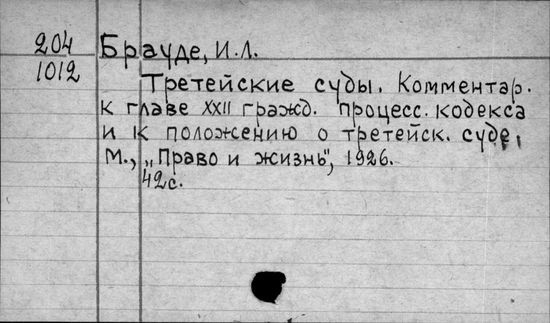 204
1012
Брауде, И.Л.
Третейские суды. Комментар.
к главе XXII гражд. процесс. кодекса
и к положению о третейск. суде.
М., „Право и жизнь", 1926.
42с.